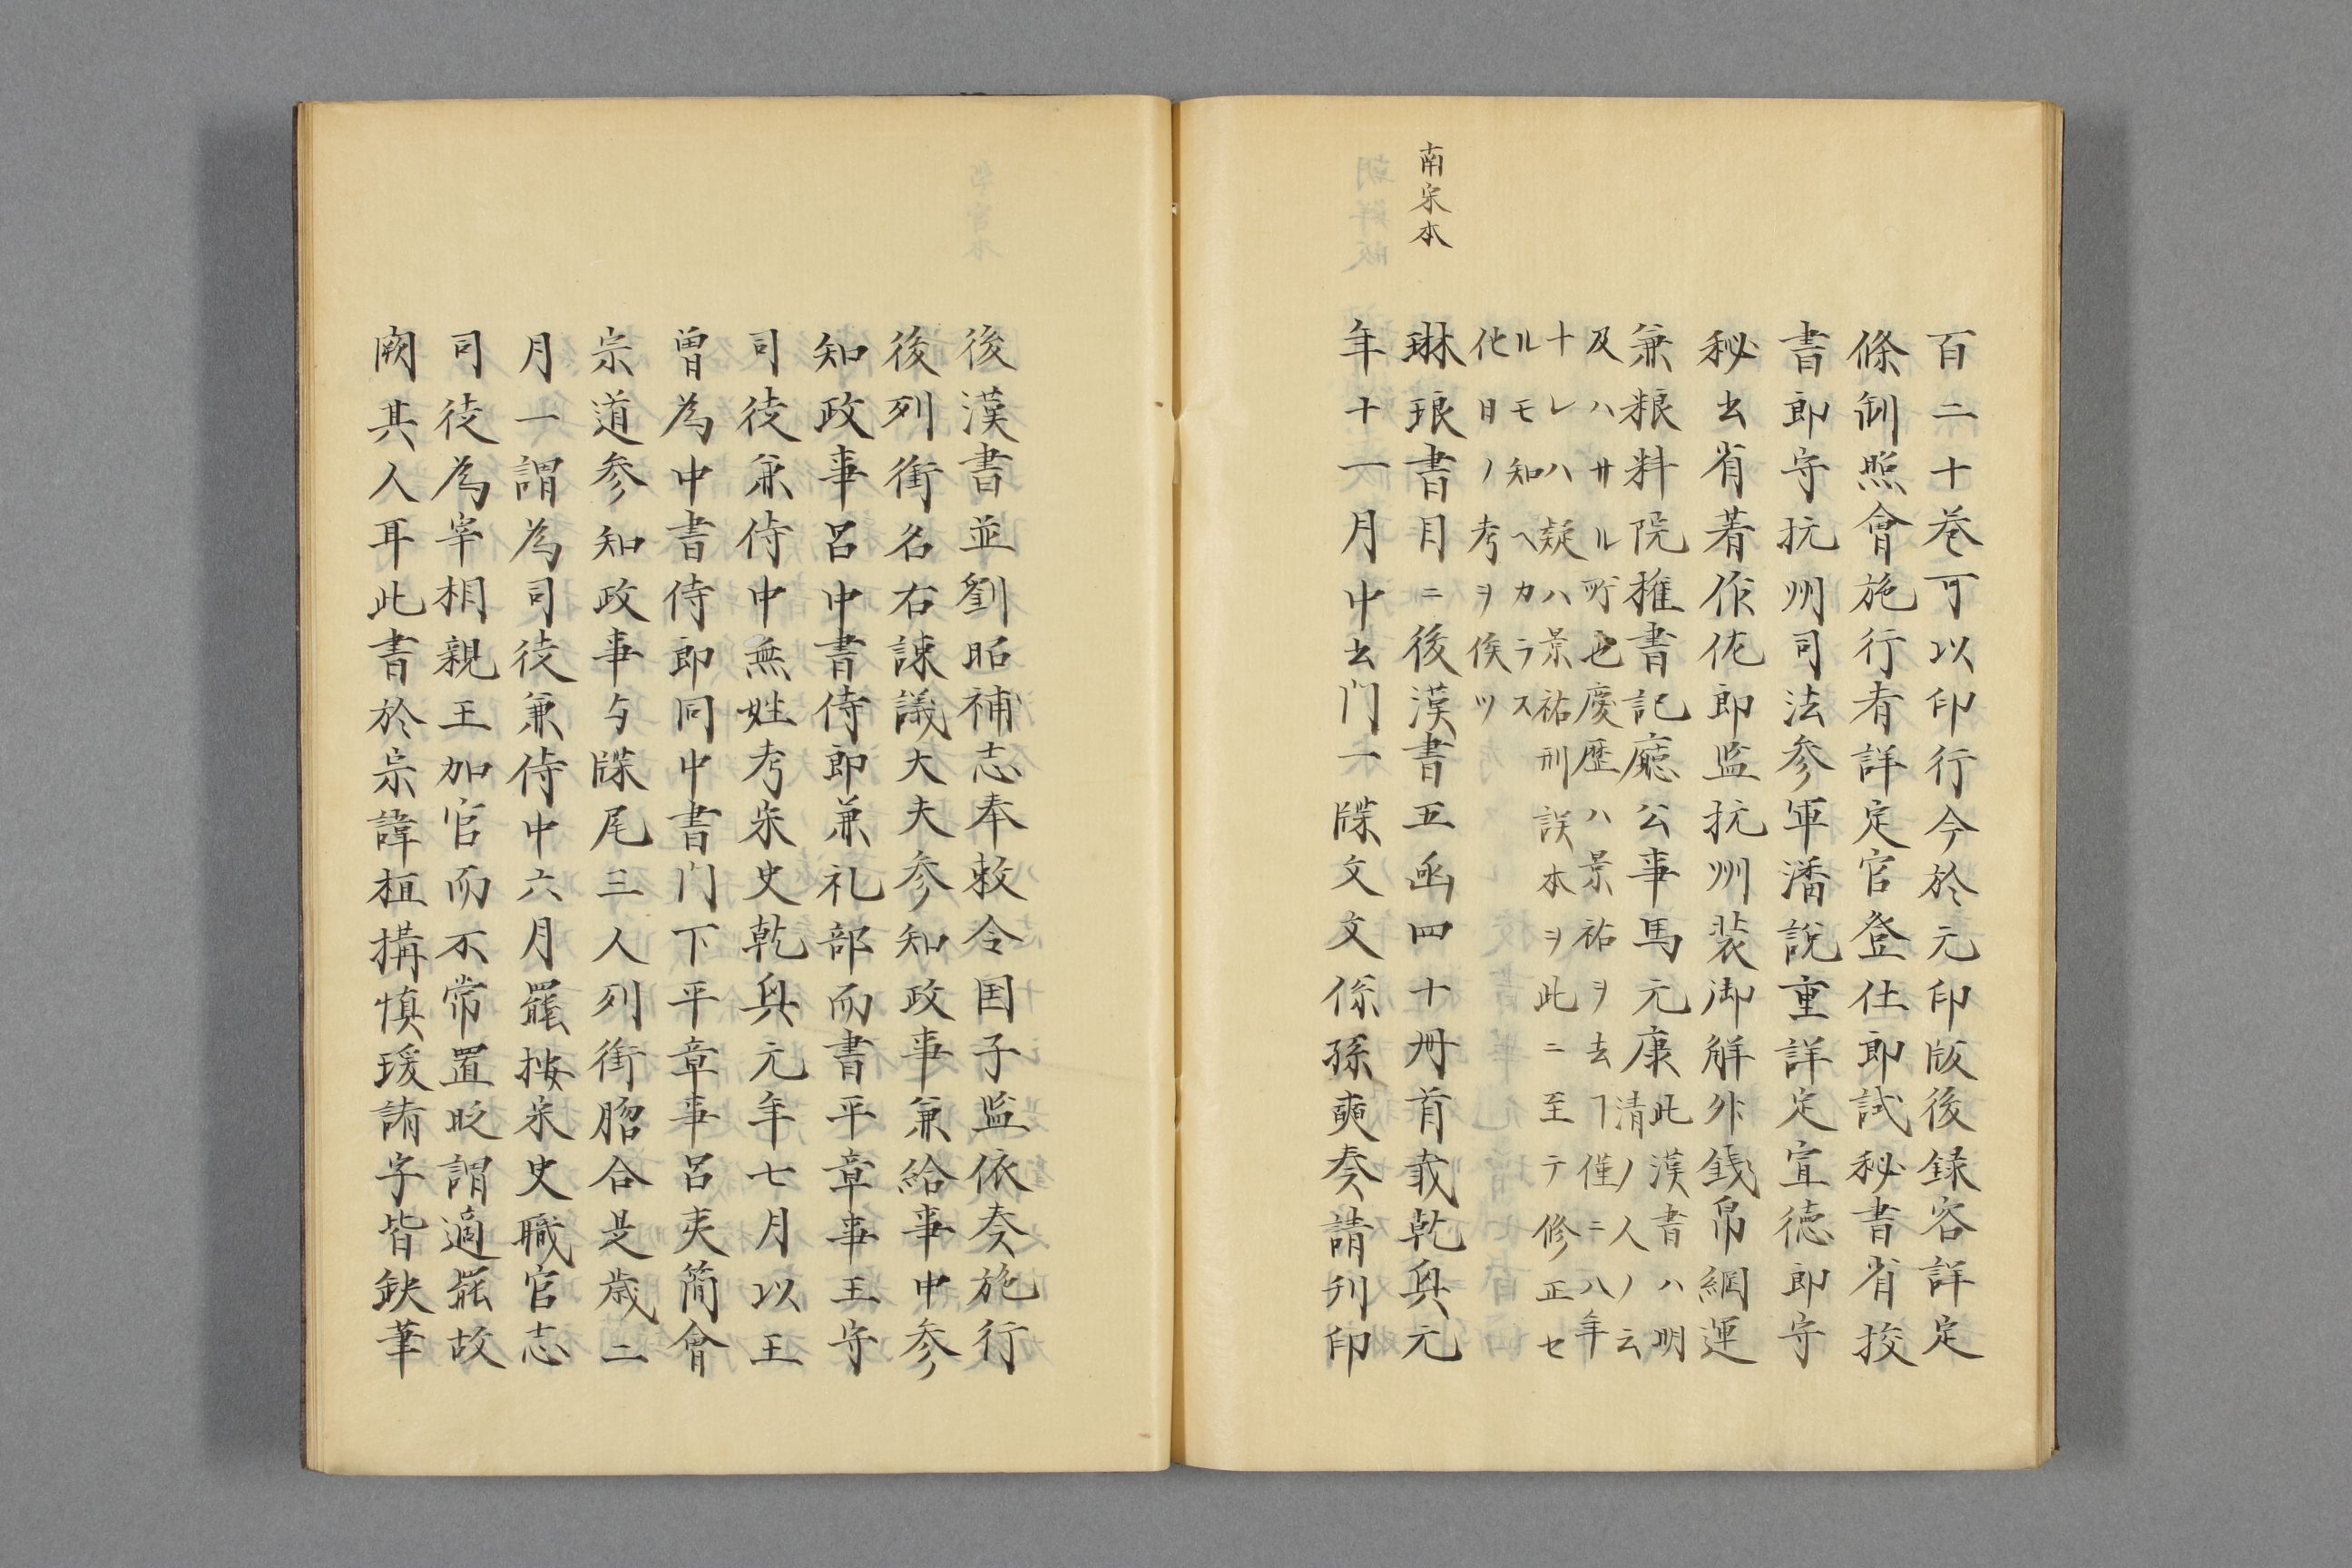 百二十巻可以印行今於元印版後録容詳定
條制照會施行者詳定官登仕郎試秘書省挍
書郎守抗州司法參軍潘說重詳定宣徳郎守
秘书省著作佐郎监抗州裝御觧外錢帛綱運
兼粮料院推書記廳公事馬元康此漢書ハ明
清ノ人ノ云
及ハサル所也慶歴ハ景祐ヲ去ヿ僅ニ八年
ナレハ疑ハ景祐刑誤本ヲ此ニ至テ修正セ
ルモ知ヘカラス
他日ノ考ヲ俟ツ
南宋本
琳琅書目ニ後漢書五函四十冊首載乾興元
年十一月中书门一牒文文係孫奭奏請刊印
後漢書並劉昭補志奉敕令国子监依奏施行
後列銜名右諌議大夫参知政事兼給事中参
知政事呂中書侍郎兼礼部而書平章事王守
司徒兼侍中無姓考宋史乾興元年七月以王
曽為中書侍郎同中書门下平章事呂夷簡會
宗道参知政事与牒尾三人列銜脗合是歳二
月一謂為司徒兼侍中六月罷按宋史職官志
司徒為宰相親王加官而不常置貶謂適罷故
闕其人耳此書於宗諱桓構慎瑗請字皆缺筆